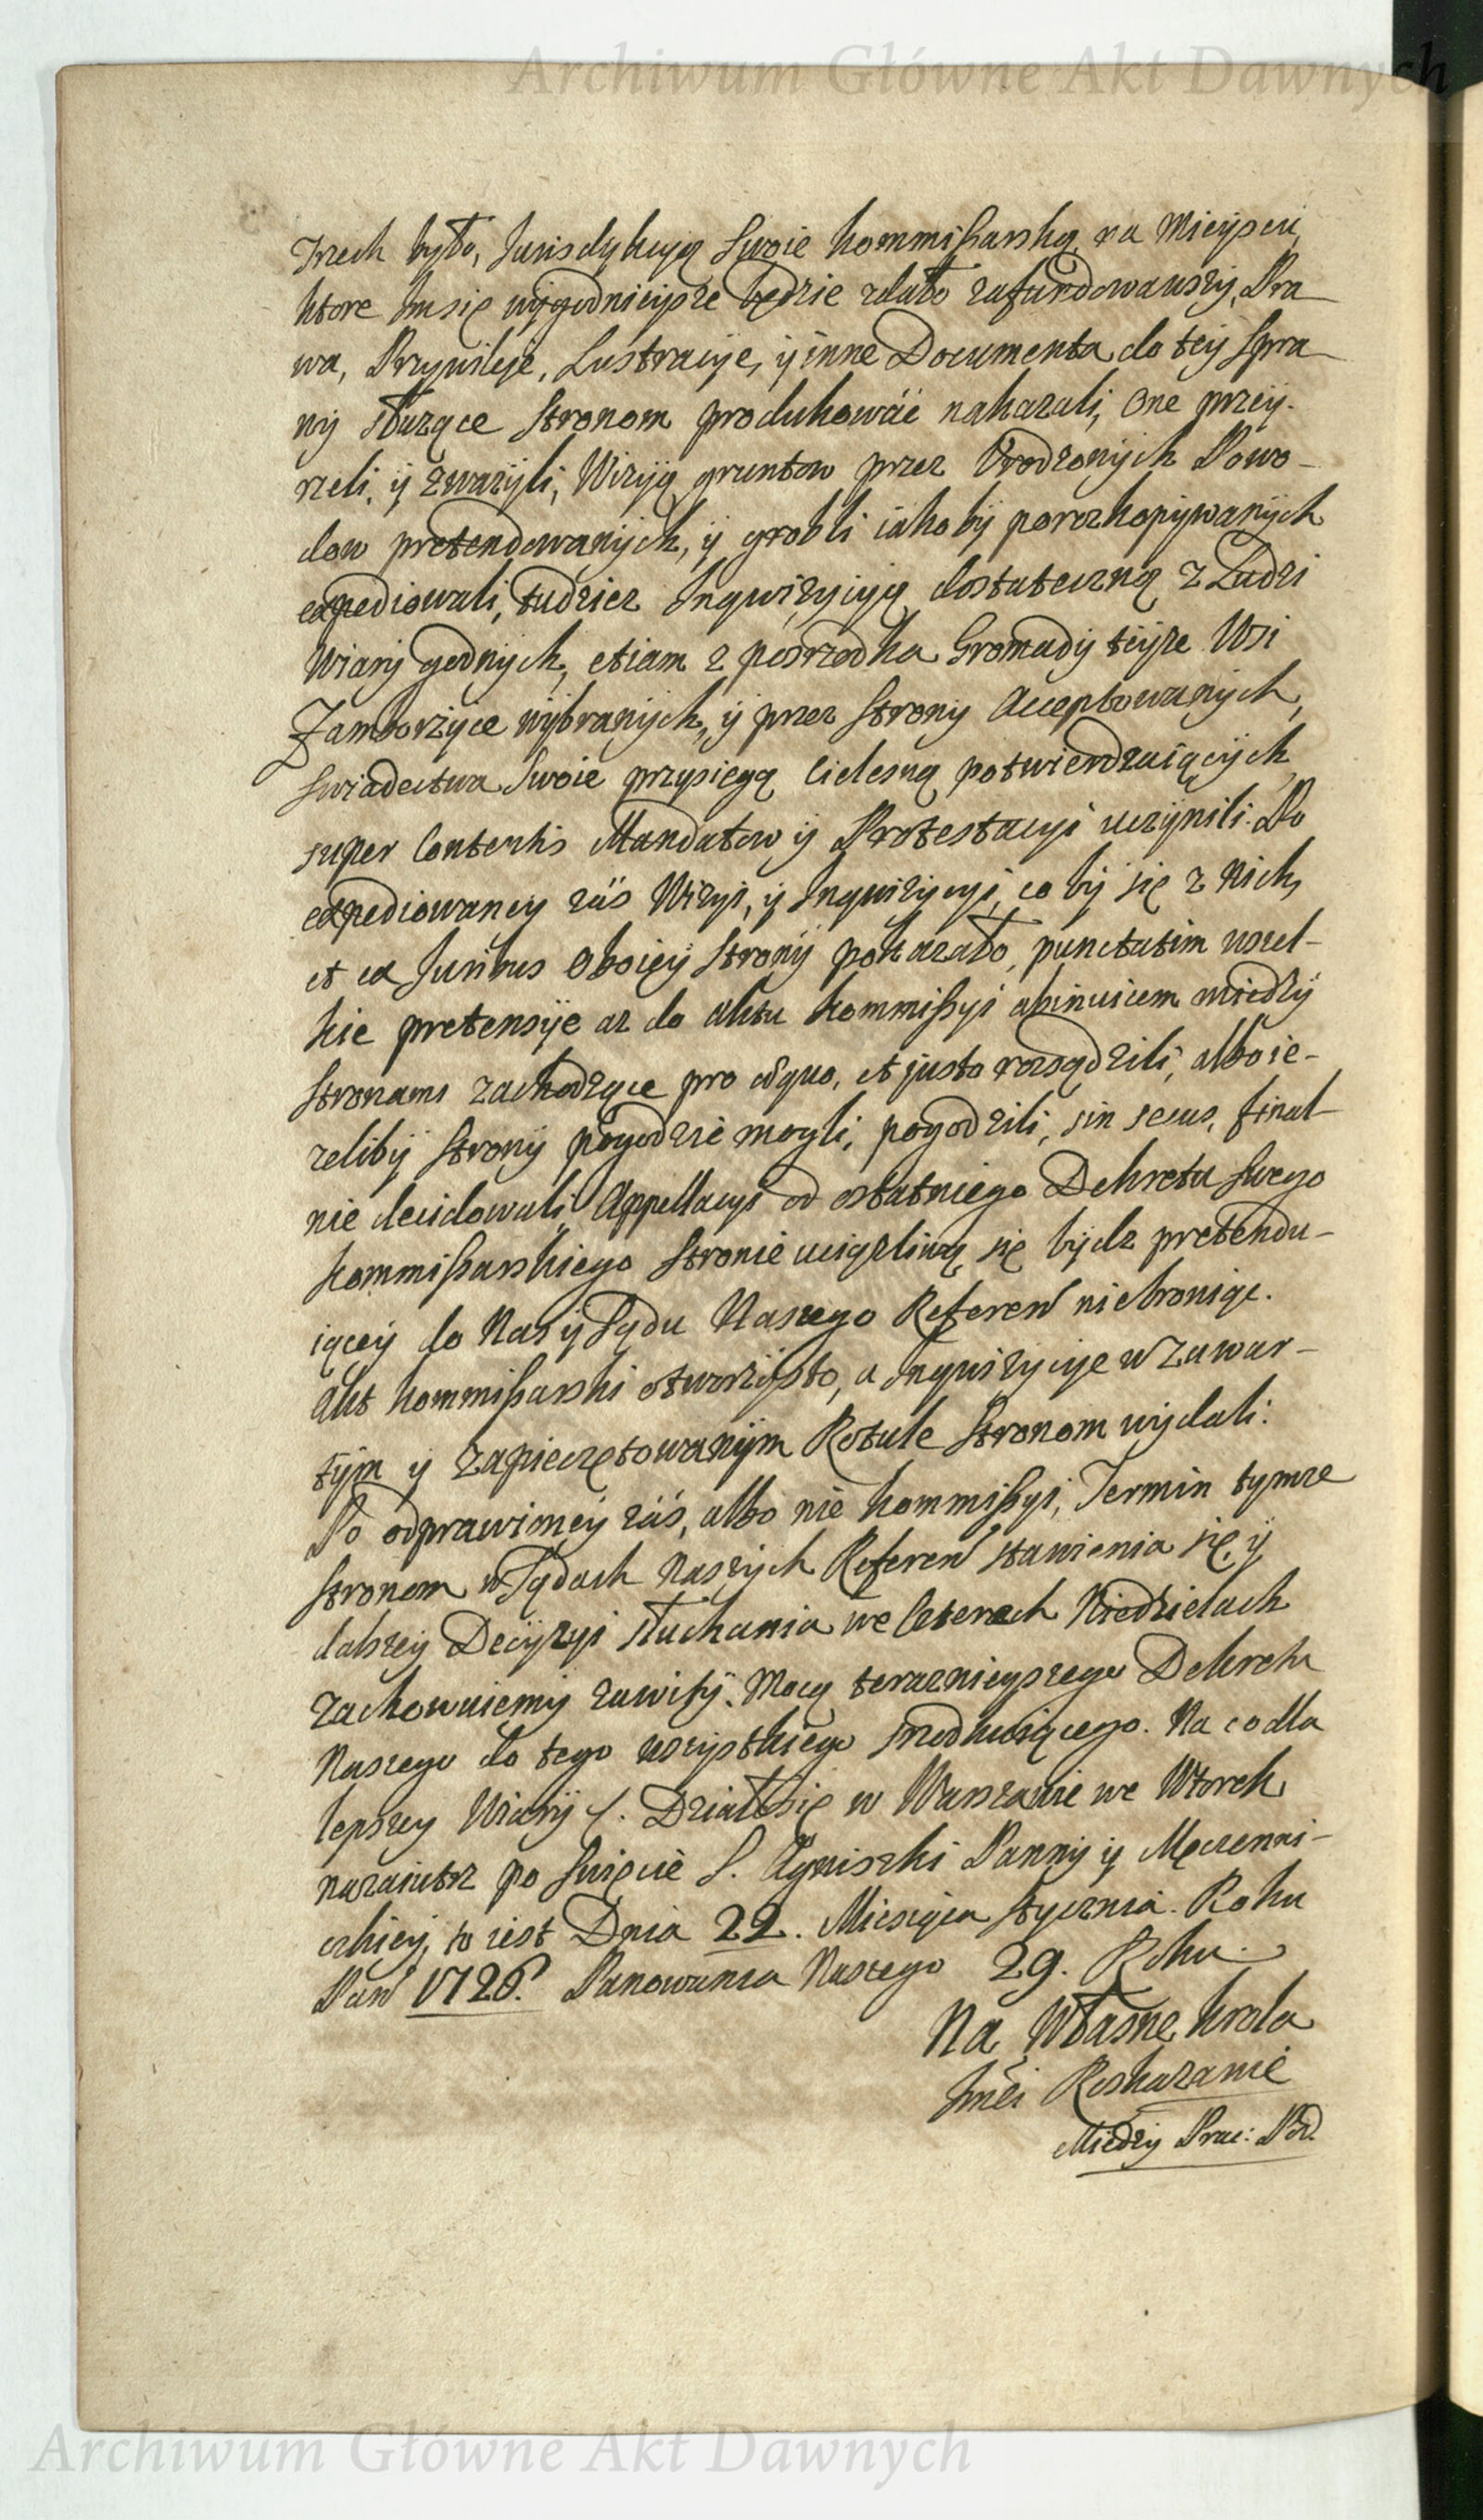 Archiwum Główne Akt Dawnych
Trzech było, Jurisdykcyą Swoie Kommißarską na Mieyscu,
ktore Im się wygodnieysze będzie zdało zafundowawszy, Pra-
wa, Przywileje, Lustracyje, y inne Documenta do tey Spra-
wy służące Stronom produkować nakazali, One przey-
rzeli, y zważyli, Wizyą gruntow przez Urodzonych Powo-
dow pretendowanych, y grobli iakoby porozkopywanych
expediowali, tudziez Inqwizycyą dostateczną z Ludzi
Wiary godnych, etiam z posrzodka Gromady teyze Wsi
Zamborzyce wybranych, y przez Strony Acceptowanych,
Swiadectwa Swoie przysięgą Cielesną potwierdzaiących,
super Contentis Mandatow y Protestacyi uczynili. Po
expediowaney zaś Wizyi, y Inqwizycyi, co by się z Nich,
et ex Juribus Oboiey Strony pokazało, punctatim wszel-
kie pretensyje az do Aktu Kommißyi abinvicem między
Stronami zachodzące pro æquo, et justo rozsądzili, albo ie-
zeliby Strony pogodzić mogli, pogodzili, sin secus, final-
nie decidowali, Appellacyi od ostatniego Dekretu Swego
Kommißarskiego Stronie uciążliwą się bydz pretendu-
iącey do Nas y Sądu Naszego Referen nie broniąc.
Akt Kommißarski otworzysto, a Inqwizycyje w Zawar-
tym y Zapieczętowanym Rotule Stronom wydali:
Po odprawioney zaś, albo nie Kommißyi, Termin tymze
Stronom w Sądach Naszych Referen stawienia się, y
dalszey Decyzyi słuchania we Czterech Niedzielach
Zachowuiemy zawity. Mocą teraznieyszego Dekretu
Naszego do tego wszystkiego srzodkuiącego. Na co dla
lepszey Wiary &. Działo się w Warszawie we Wtorek
nazaiutrz po Swięcie S. Agniszki Panny y Męczenni-
czkiey, to iest Dnia 22. Miesiąca Stycznia. Roku
Pań 1726. Panowania Naszego 29. Roku.
Na Własne Krola
Jmći Roskazanie
Między Prac: Pod.
Archiwum Główne Akt Dawnych